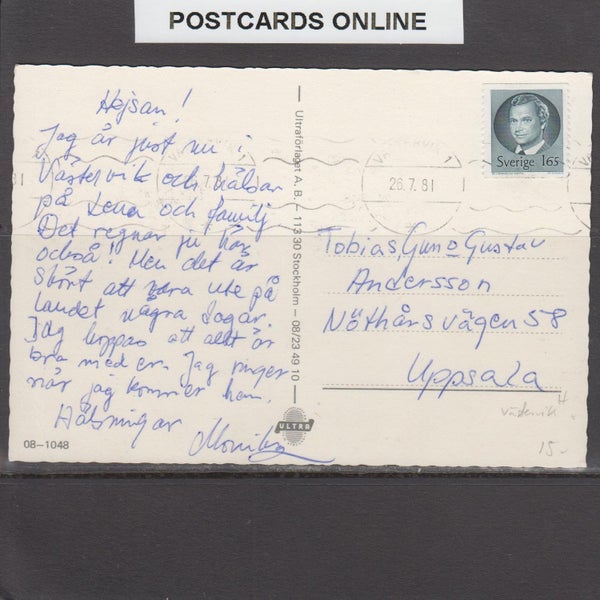 POSTCARDS ONLINE
Hejsan!
Jag är just nu i
Västervik och hälsar
på Lena och familj
Det regnar ju här
också! Men det är
skönt att vara ute på
landet några dagar.
Jag hoppas att allt är
bra med er. Jag ringer
när jag kommer hem.
Hälsningar
Monika
08-1048
Ultraförlaget A.B. – 113 30 Stockholm – 08/23 49 10
ULTRA
Sverige 165
26.7.81
Tobias, Gun o Gustav
Andersson
Nöthårsvägen 58
Uppsala
15.-